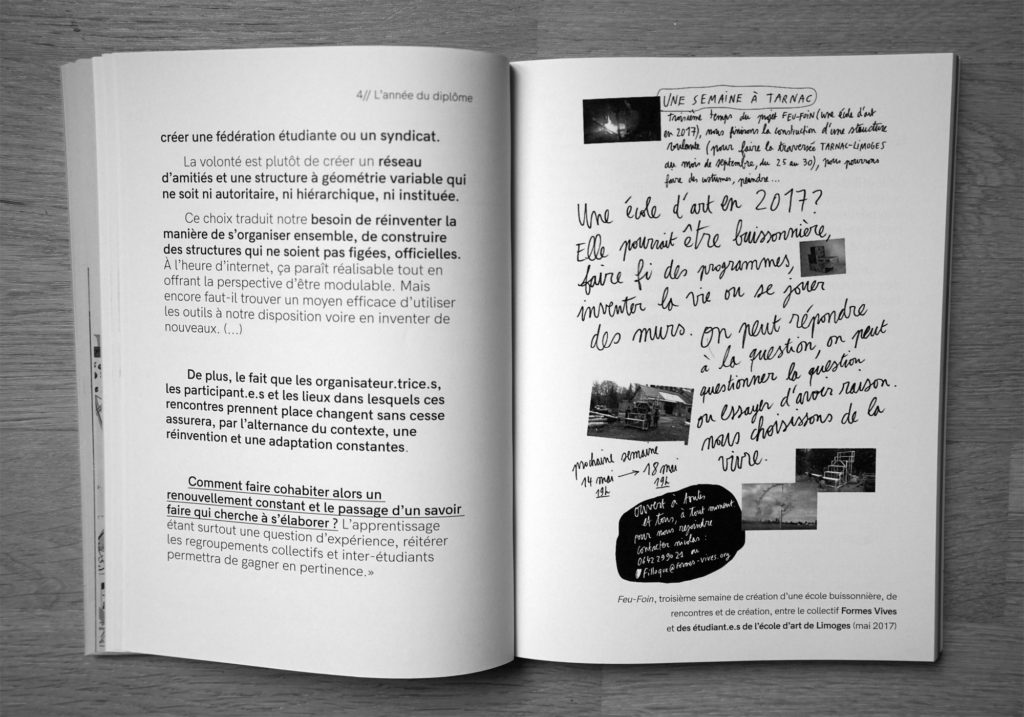 4// L'année du diplôme
créer une fédération étudiante ou un syndicat.
La volonté est plutôt de créer un réseau
d'amitiés et une structure à géométrie variable qui
ne soit ni autoritaire, ni hiérarchique, ni instituée.
Ce choix traduit notre besoin de réinventer la
manière de s'organiser ensemble, de construire
des structures qui ne soient pas figées, officielles.
À l'heure d'internet, ça paraît réalisable tout en
offrant la perspective d'être modulable. Mais
encore faut-il trouver un moyen efficace d'utiliser
les outils à notre disposition voire en inventer de
nouveaux. (...)
De plus, le fait que les organisateur.trice.s,
les participant.e.s et les lieux dans lesquels ces
rencontres prennent place changent sans cesse
assurera, par l'alternance du contexte, une
réinvention et une adaptation constantes.
Comment faire cohabiter alors un
renouvellement constant et le passage d'un savoir
faire qui cherche à s'élaborer ? L'apprentissage
étant surtout une question d'expérience, réitérer
les regroupements collectifs et inter-étudiants
permettra de gagner en pertinence.»
UNE SEMAINE À TARNAC
troisième temps du projet FEU-FOIN (une école d'art
en 2017), nous finirons la construction d'une structure
roulante (pour faire la traversée TARNAC-LIMOGES
du mois de septembre, du 25 au 30), nous pourrons
faire des costumes, peindre...
Une école d'art en 2017?
Elle pourrait être buissonnière,
faire fi des programmes,
inventer la vie ou se jouer
des murs. On peut répondre
à la question, on peut
questionner la question
ou essayer d'avoir raison.
nous choisissons de la
vivre.
prochaine semaine
14 mai → 18 mai
19h 19h
ouvert à toutes
et tous, à tout moment.
pour nous rejoindre
contacter nicolas :
ou
Feu-Foin, troisième semaine de création d'une école buissonnière, de
rencontres et de création, entre le collectif Formes Vives
et des étudiant.e.s de l'école d'art de Limoges (mai 2017)